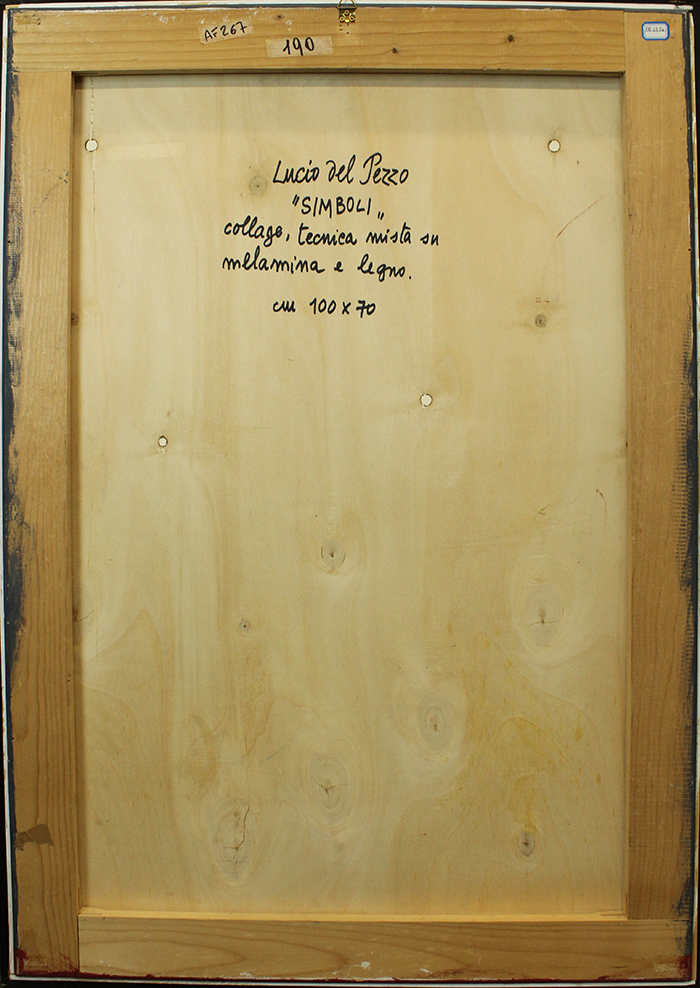 AF267
190
Lucio del Pezzo
"SIMBOLI"
collage, tecnica mista su
melamina e legno.
cm 100 x 70